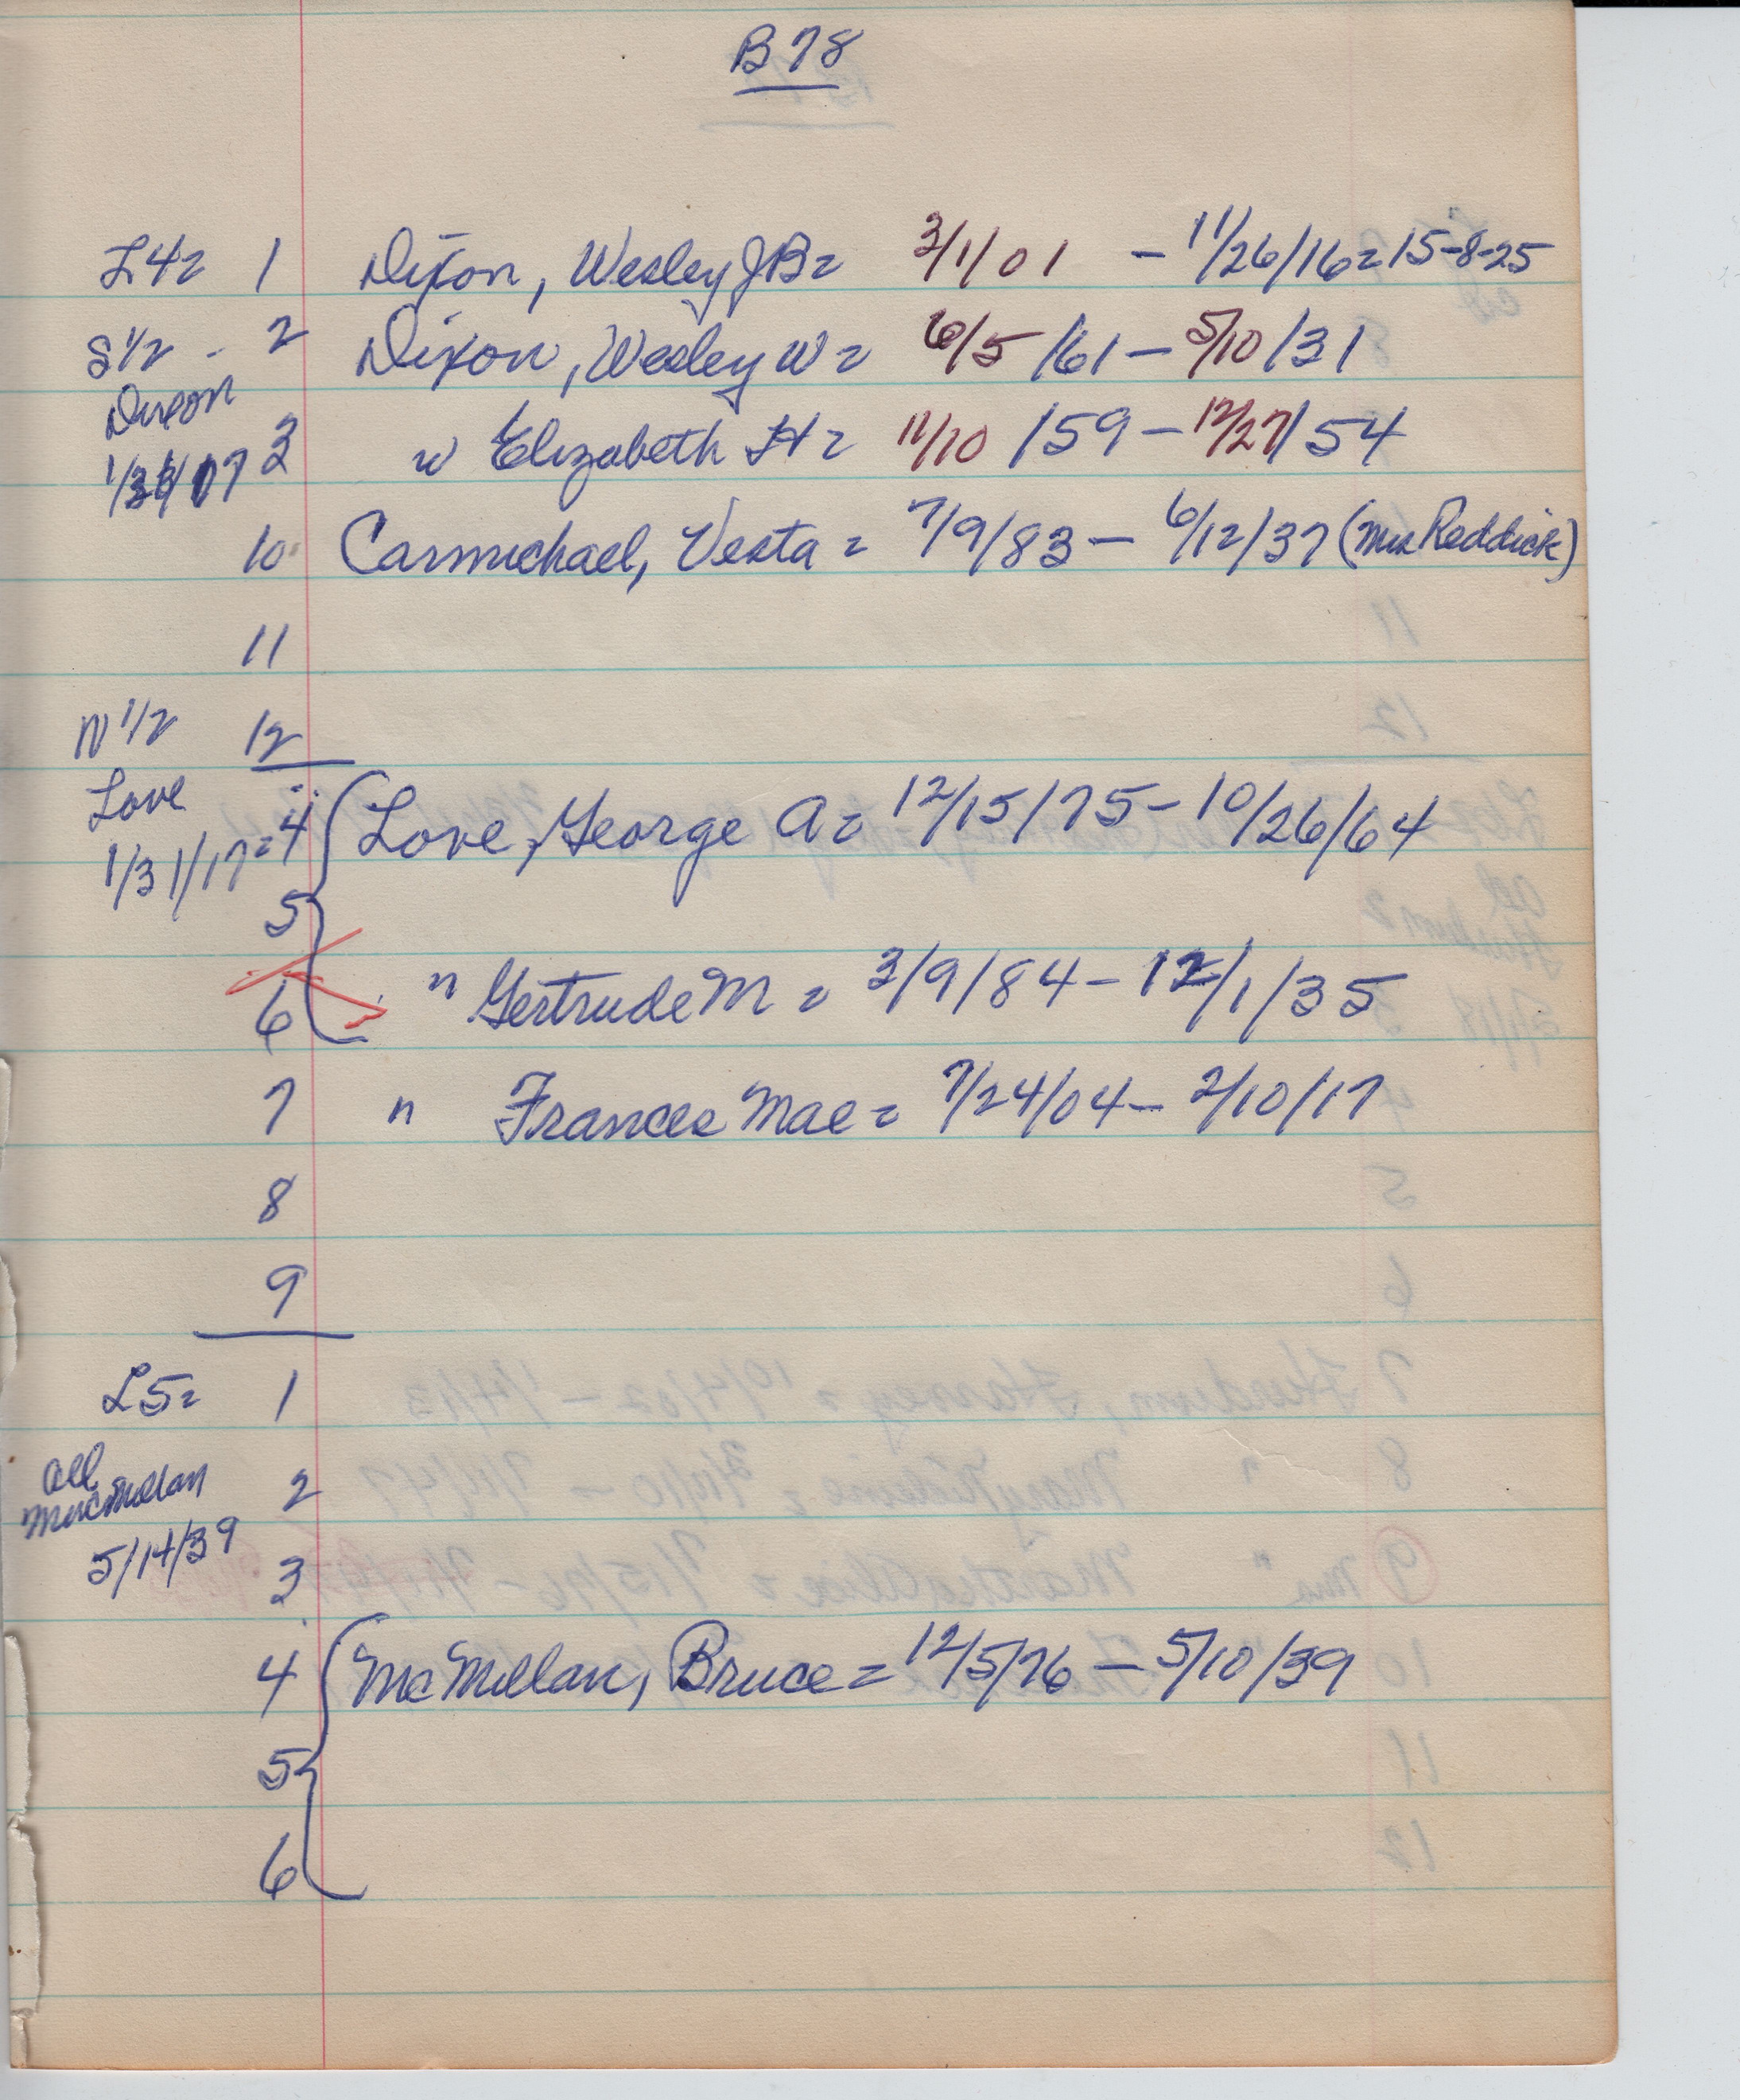 B78
L4= 1 Dixon, Wesley JB= 3/1/01 - 11/26/16=15-8-25
S1/2 - 2 Dixon, Wesley W= 6/5/61 - 5/10/31
Dixon
3 w Elizabeth H= 11/10/59 - 12/27/54
1/31/17
10 Carmichael, Vesta = 7/9/83 - 6/12/37 (Mrs Reddick)
11
N 1/2 12
Love
1/31/17= 4 Love, George A= 12/15/75 - 10/26/64
5
6 " Gertrude M = 3/9/84 - 12/1/35
7 " Frances Mae = 7/24/04 - 2/10/17
8
9
L5= 1
All
MacMillan 2
5/14/39
3
4 McMillan, Bruce = 12/5/76 - 5/10/39
5
6